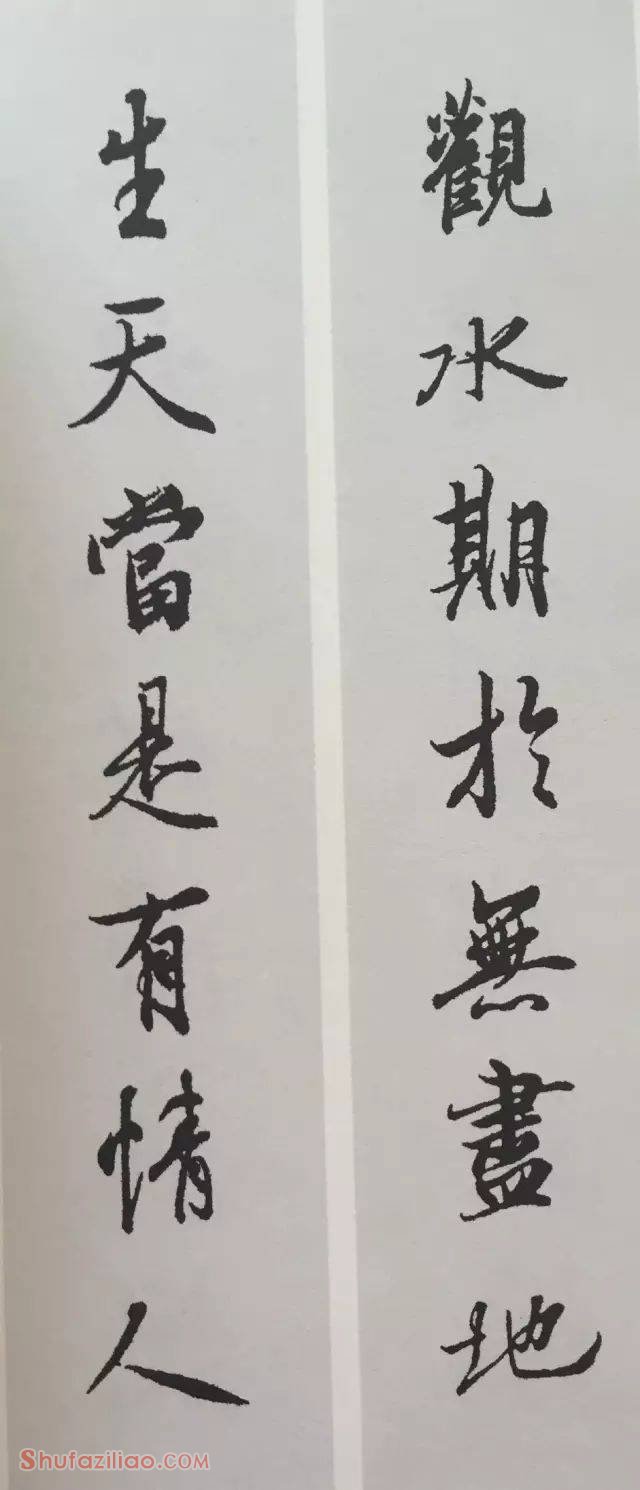 觀水期於無盡地
生天當是有情人
Shufaziliao.com